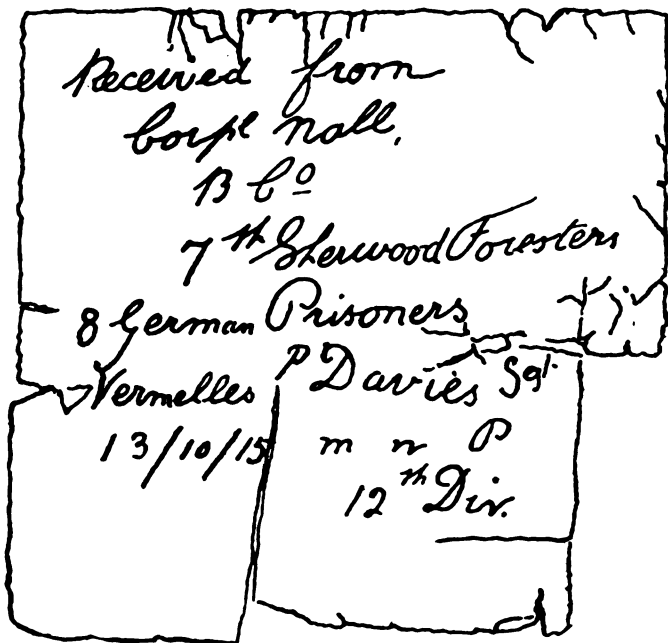 Received from
Corpl Nall.
B Co
7th Sherwood Foresters
8 German Prisoners
Vermelles P Davies Sgt.
13/10/15 m n P
12th Div.